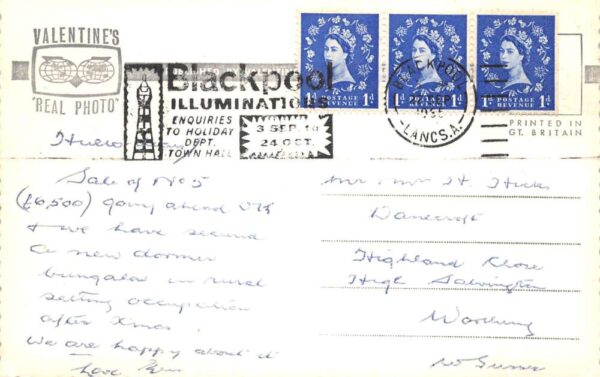 VALENTINE'S
"REAL PHOTO"
Blackpool
ILLUMINATIONS
ENQUIRIES
TO HOLIDAY
DEPT.
TOWN HALL
3 SEP. to
24 OCT.
1D POSTAGE REVENUE 1D
1D POSTAGE REVENUE 1D
1D POSTAGE REVENUE 1D
BLACKPOOL
LANCS.A.
PRINTED IN
GT. BRITAIN
Sale of No 5
(£6,500) going ahead
& we have secured
a new dormer
bungalow in rural
setting occupation
after Xmas.
We are happy about it
Love
Mr & Mrs H. Hicks
Danecroft
Highland Close
High Salvington
Worthing
W. Sussex